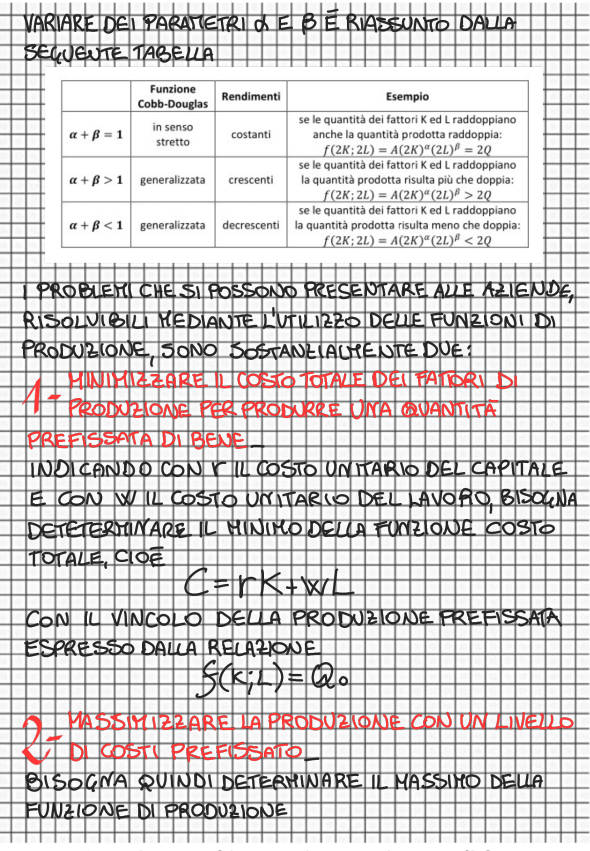 VARIARE DEI PARAMETRI α E β È RIASSUNTO DALLA
SEGUENTE TABELLA
Funzione Cobb-Douglas Rendimenti Esempio
α + β = 1 in senso stretto costanti se le quantità dei fattori K ed L raddoppiano
anche la quantità prodotta raddoppia:
f(2K; 2L) = A(2K)^α(2L)^β = 2Q
α + β > 1 generalizzata crescenti se le quantità dei fattori K ed L raddoppiano
la quantità prodotta risulta più che doppia:
f(2K; 2L) = A(2K)^α(2L)^β > 2Q
α + β < 1 generalizzata decrescenti se le quantità dei fattori K ed L raddoppiano
la quantità prodotta risulta meno che doppia:
f(2K; 2L) = A(2K)^α(2L)^β < 2Q
I PROBLEMI CHE SI POSSONO PRESENTARE ALLE AZIENDE,
RISOLVIBILI MEDIANTE L'UTILIZZO DELLE FUNZIONI DI
PRODUZIONE, SONO SOSTANZIALMENTE DUE:
1- MINIMIZZARE IL COSTO TOTALE DEI FATTORI DI
PRODUZIONE PER PRODURRE UNA QUANTITÀ
PREFISSATA DI BENE_
INDICANDO CON r IL COSTO UNITARIO DEL CAPITALE
E CON W IL COSTO UNITARIO DEL LAVORO, BISOGNA
DETETERMINARE IL MINIMO DELLA FUNZIONE COSTO
TOTALE, CIOÈ
C=rK+wL
CON IL VINCOLO DELLA PRODUZIONE PREFISSATA
ESPRESSO DALLA RELAZIONE
f(K;L)=Q₀
2- MASSIMIZZARE LA PRODUZIONE CON UN LIVELLO
DI COSTI PREFISSATO_
BISOGNA QUINDI DETERMINARE IL MASSIMO DELLA
FUNZIONE DI PRODUZIONE